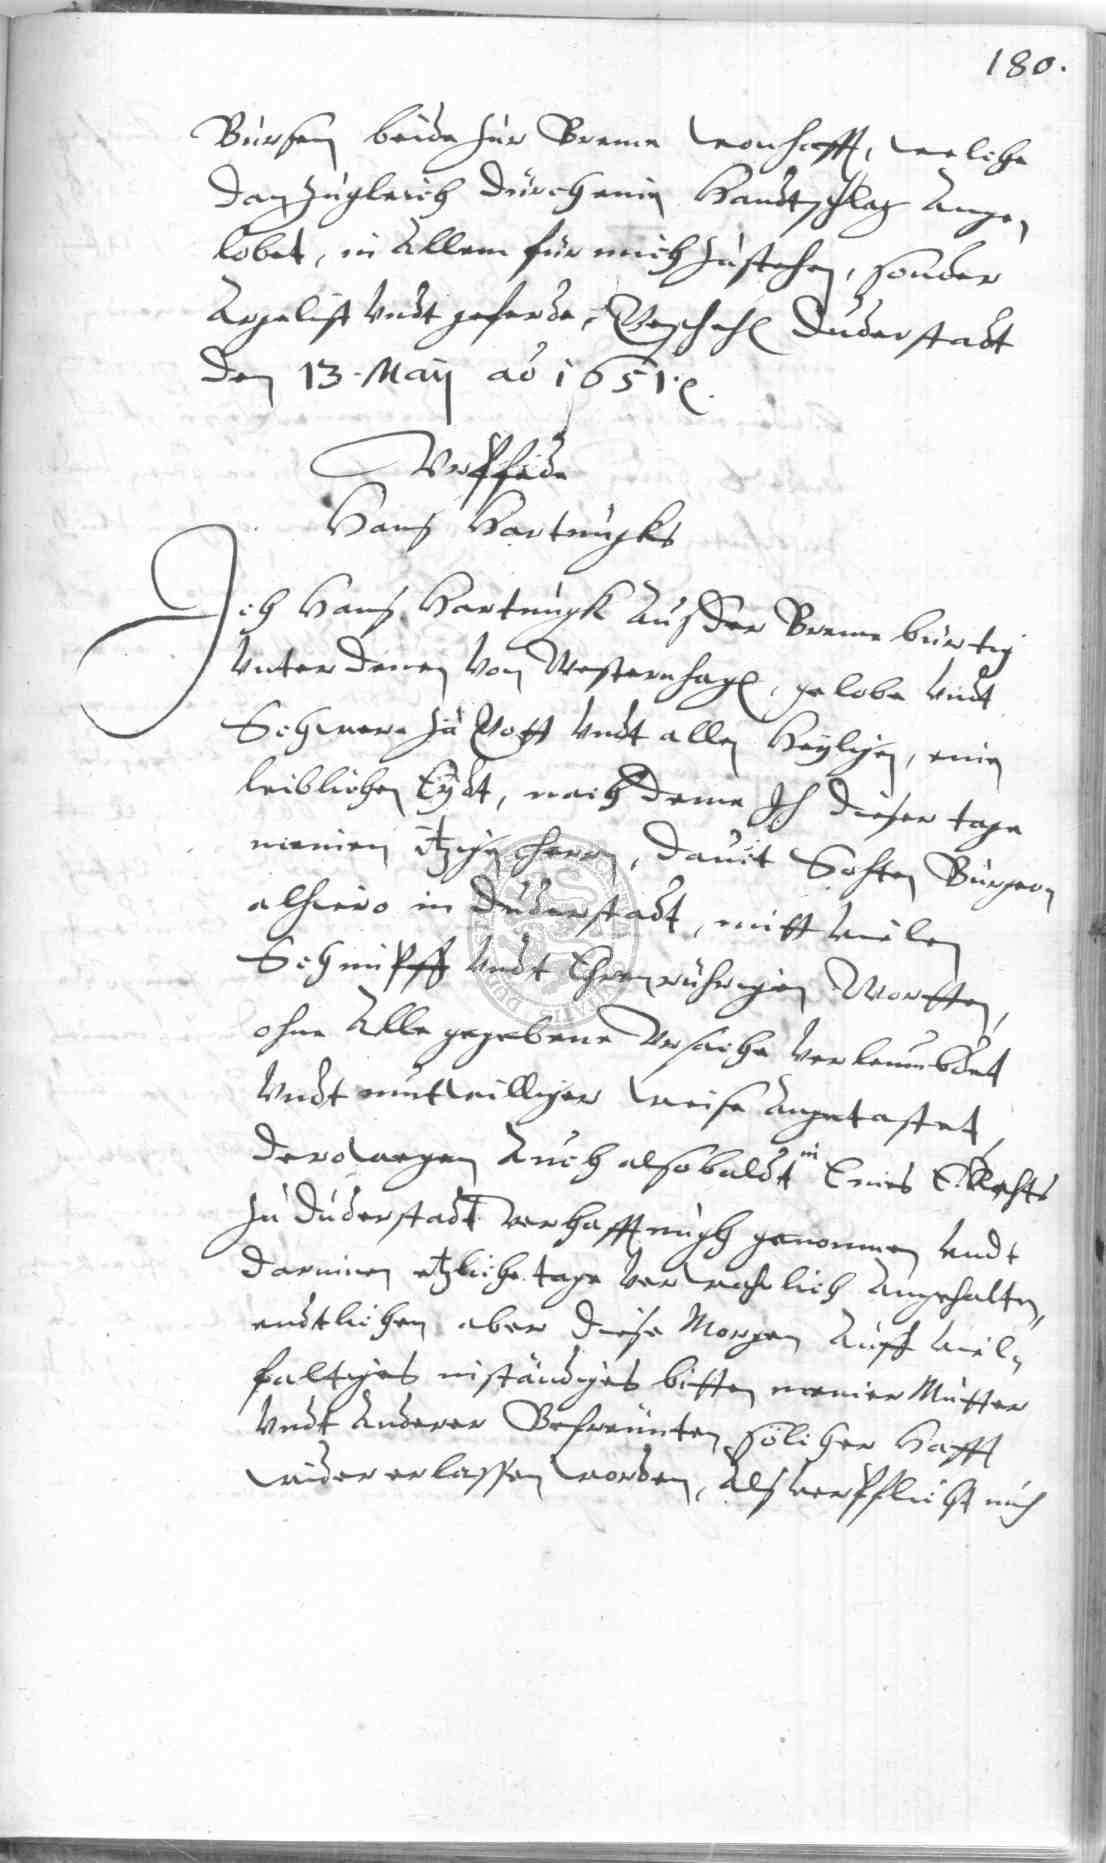 180.
Bursen beide zur Breme wonhafft, welche
dan zugleich durch einen Handtschlag Ange
lobet, in Allem für mich zustehen, sonder
Argelist undt geferde, Geschehen Duderstadt
den 13. Maij ao 1651.
Urpfede
Hans Hartungks
Ich Hans Hartungk Aus der Breme bürtig
Unter denen Von Westernhagen, gelobe Undt
Schwere zu Gott Undt allen Heyligen, einen
leiblichen Eydt, nach deme Ich dieser tage
meinen itzigen herrn, Davit Sohten Bürgern
alhiero in Duderstadt, mitt vielen
Schmipff Undt Ehrenrührigen Wortten,
ohne Alle gegebene Ursache Verleumbdet
Undt mutwilliger weise Angetastet,
derowegen Auch alsobaldt in Eines E. Rahts
zu Duderstadt Verhafftungh genommen Undt
darinnen etzliche tage Verwahrlich Angehalten,
endtlichen aber diese Morgen Auff viel
faltiges instäudiges bitten meiner Mutter
Undt Anderer Befreünten solicher Hafft
wider erlassen worden, Als verpflicht mich